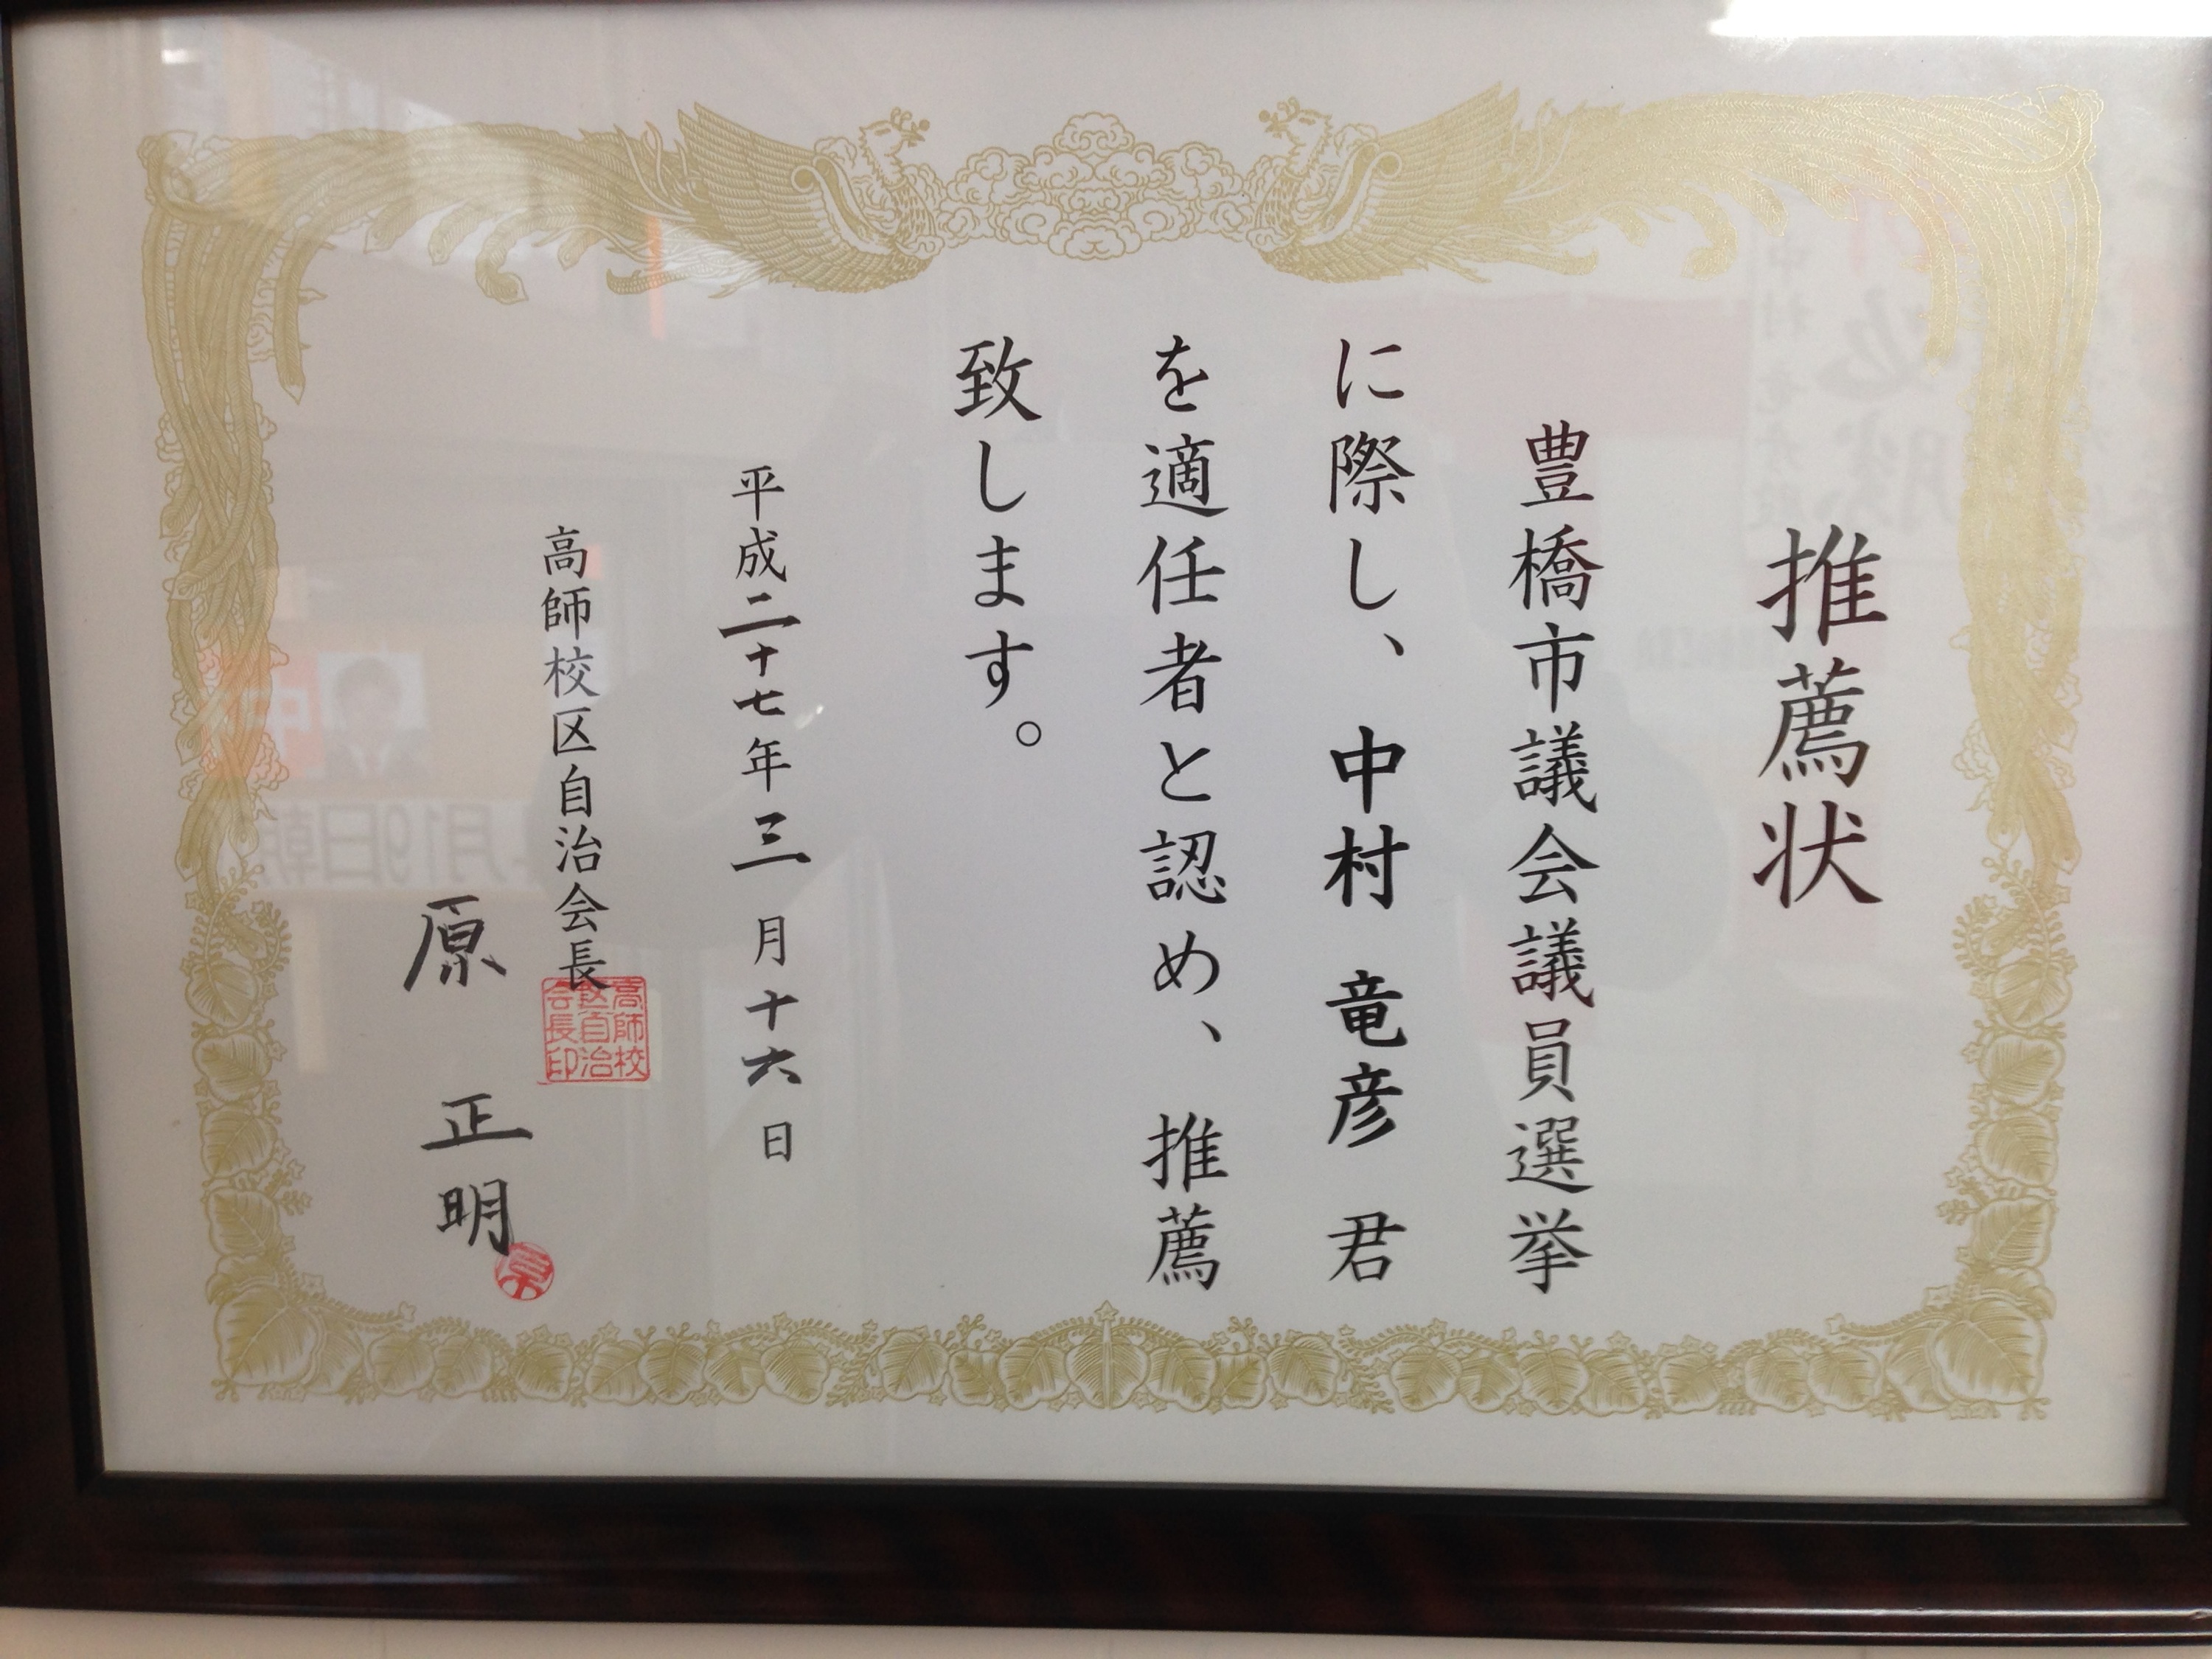 推薦状
豊橋市議会議員選挙
に際し、中村 竜彦 君
を適任者と認め、推薦
致します。
平成二十七年三月十六日
高師校区自治会長
高師校
区自治
会長印
原 正明
原